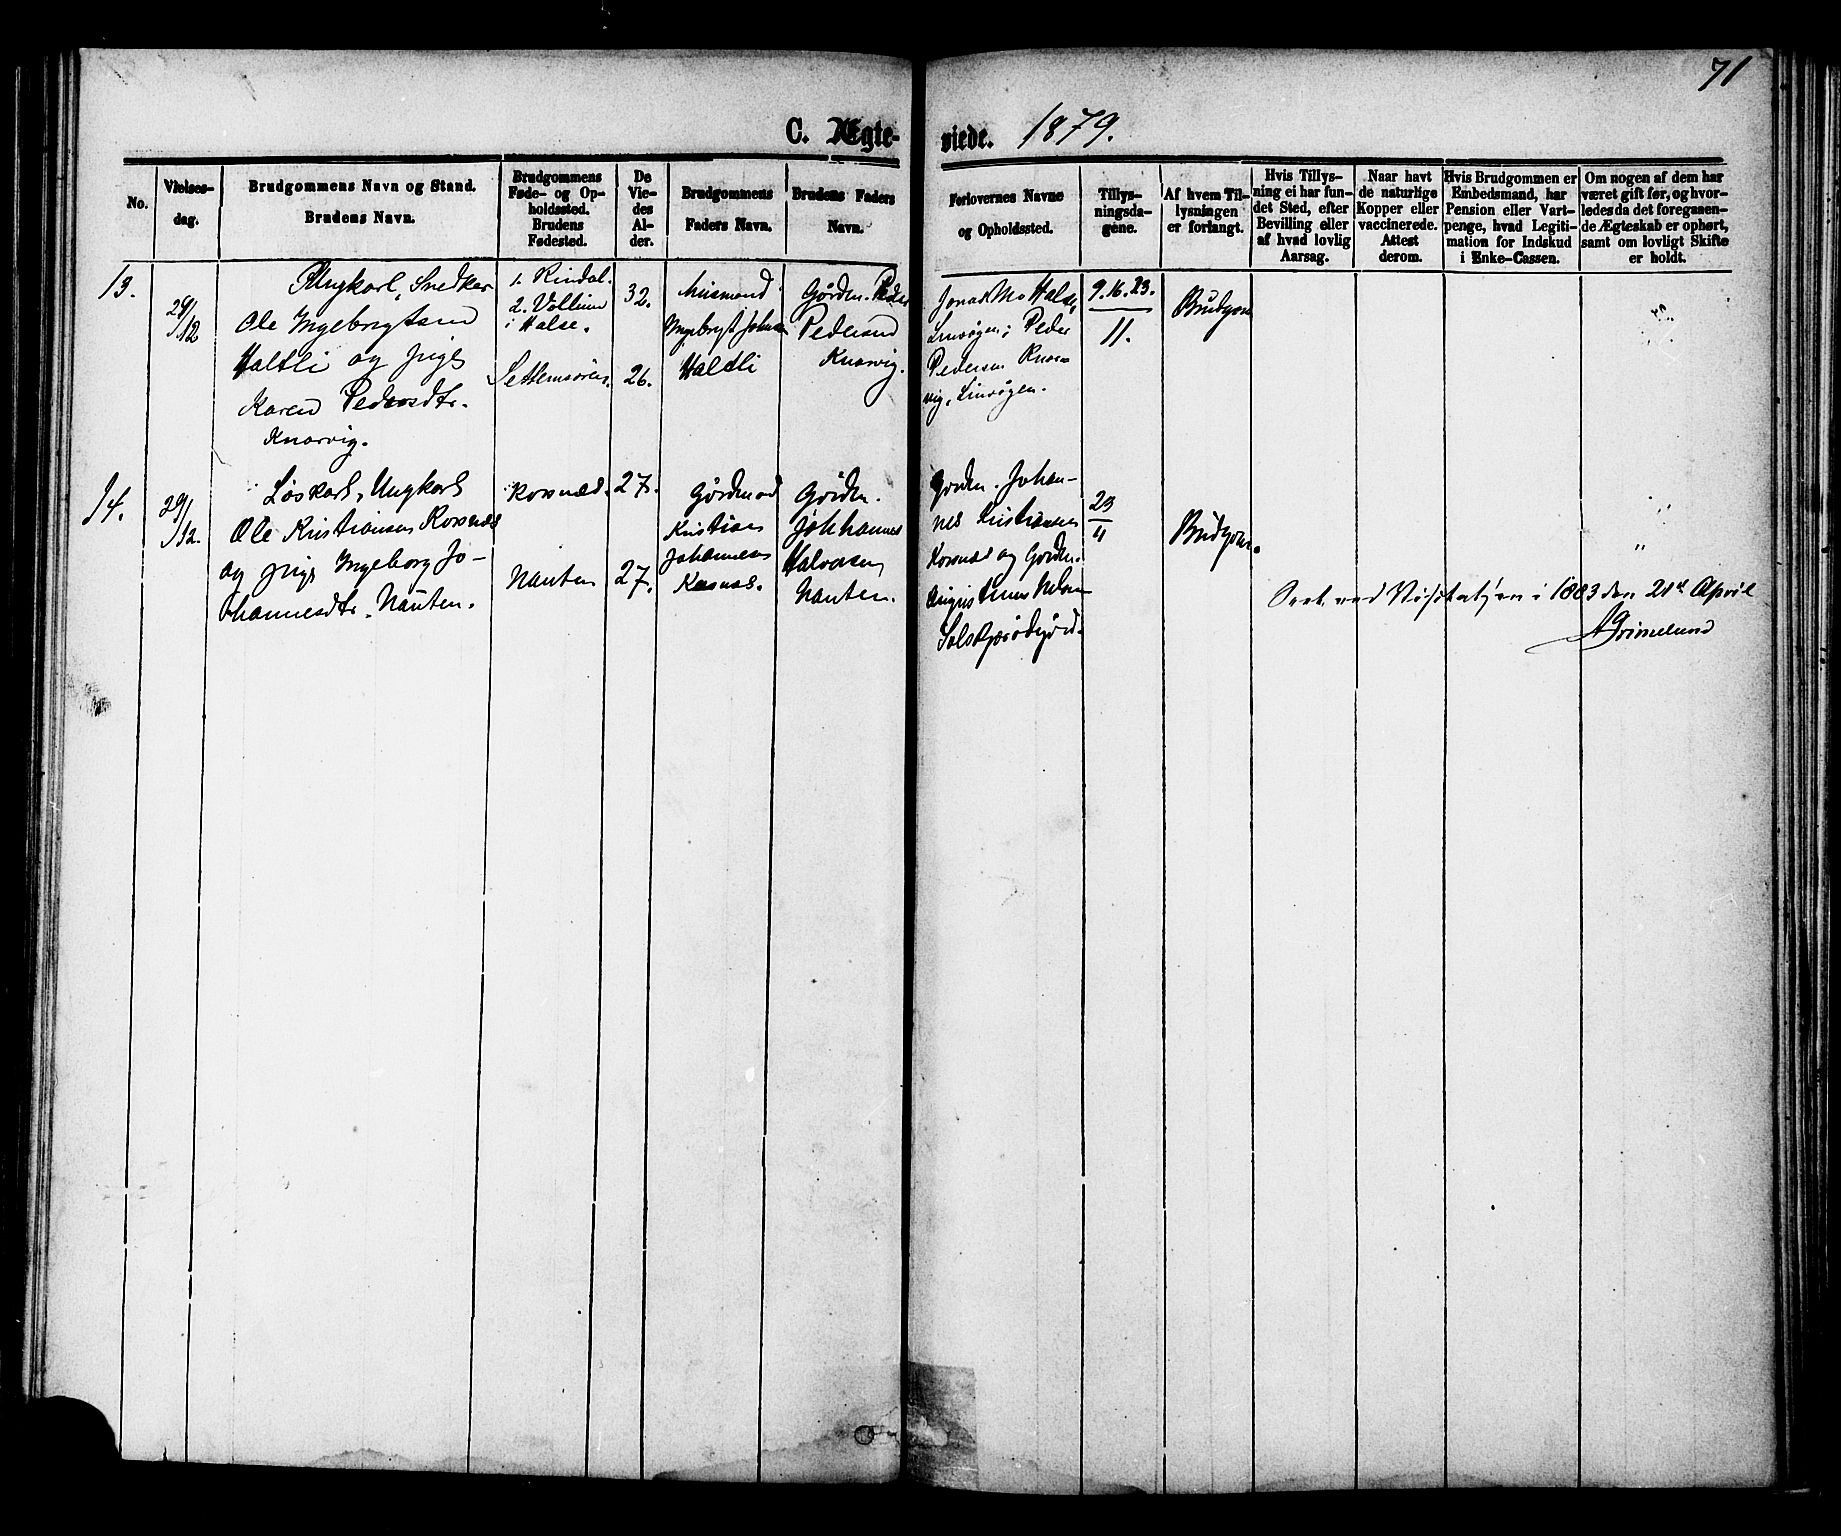 71
C. Ægte-
viede. 1879.
No.
Vielses-
dag.
Brudgommens Navn og Stand.
Brudens Navn.
Brudgommens
Føde- og Op-
holdssted.
Brudens
Fødested.
De
Vie-
des
Al-
der.
Brudgommens
Faders Navn.
Brudens Faders
Navn.
Forlovernes Navne
og Opholdssted.
Tillys-
ningsda-
gene.
Af hvem Til-
lysningen
er forlangt.
Hvis Tillys-
ning ei har fun-
det Sted, efter
Bevilling eller
af hvad lovlig
Aarsag.
Naar havt
de naturlige
Kopper eller
vaccinerede.
Attest
derom.
Hvis Brudgommen er
Embedsmand, har
Pension eller Vart-
penge, hvad Legiti-
mation for Indskud
i Enke-Cassen.
Om nogen af dem har
været gift før, og hvor-
ledes da det foregaaen-
de Ægteskab er ophørt,
samt om lovligt Skifte
er holdt.
13.
29/12
Ungkarl, Snedker
Ole Ingebrigtsen
Haltli og pige
Karen Pedersdtr.
Knarvig.
1. Rindal.
2. Vollum
i Halse.
Settemsøren.
32.
26.
Husmand
Ingebrygt Johnsen
Haltli
Gårdm. Peder
Pedersen
Knarvig.
Jonas Mo Halse,
Peder
Pedersen Knar-
vig,
9. 16. 23.
11.
Brudgom
"
14.
29/12.
Løskarl, Ungkarl
Ole Kristiansen Korsnæs
og pige Ingeborg Jo-
hannesdtr. Nauten.
Korsnæs.
Nauten
27.
27.
Gårdmand
Kristian
Johannesen
Korsnæs.
Gårdm.
Johannes
Halvorsen
Nauten.
Gårdm. Johan-
nes Kristiansen
Korsnæs og Gårdm.
23
11
Brudgom.
"
"
i 1883 den 21de April
AGrimelund